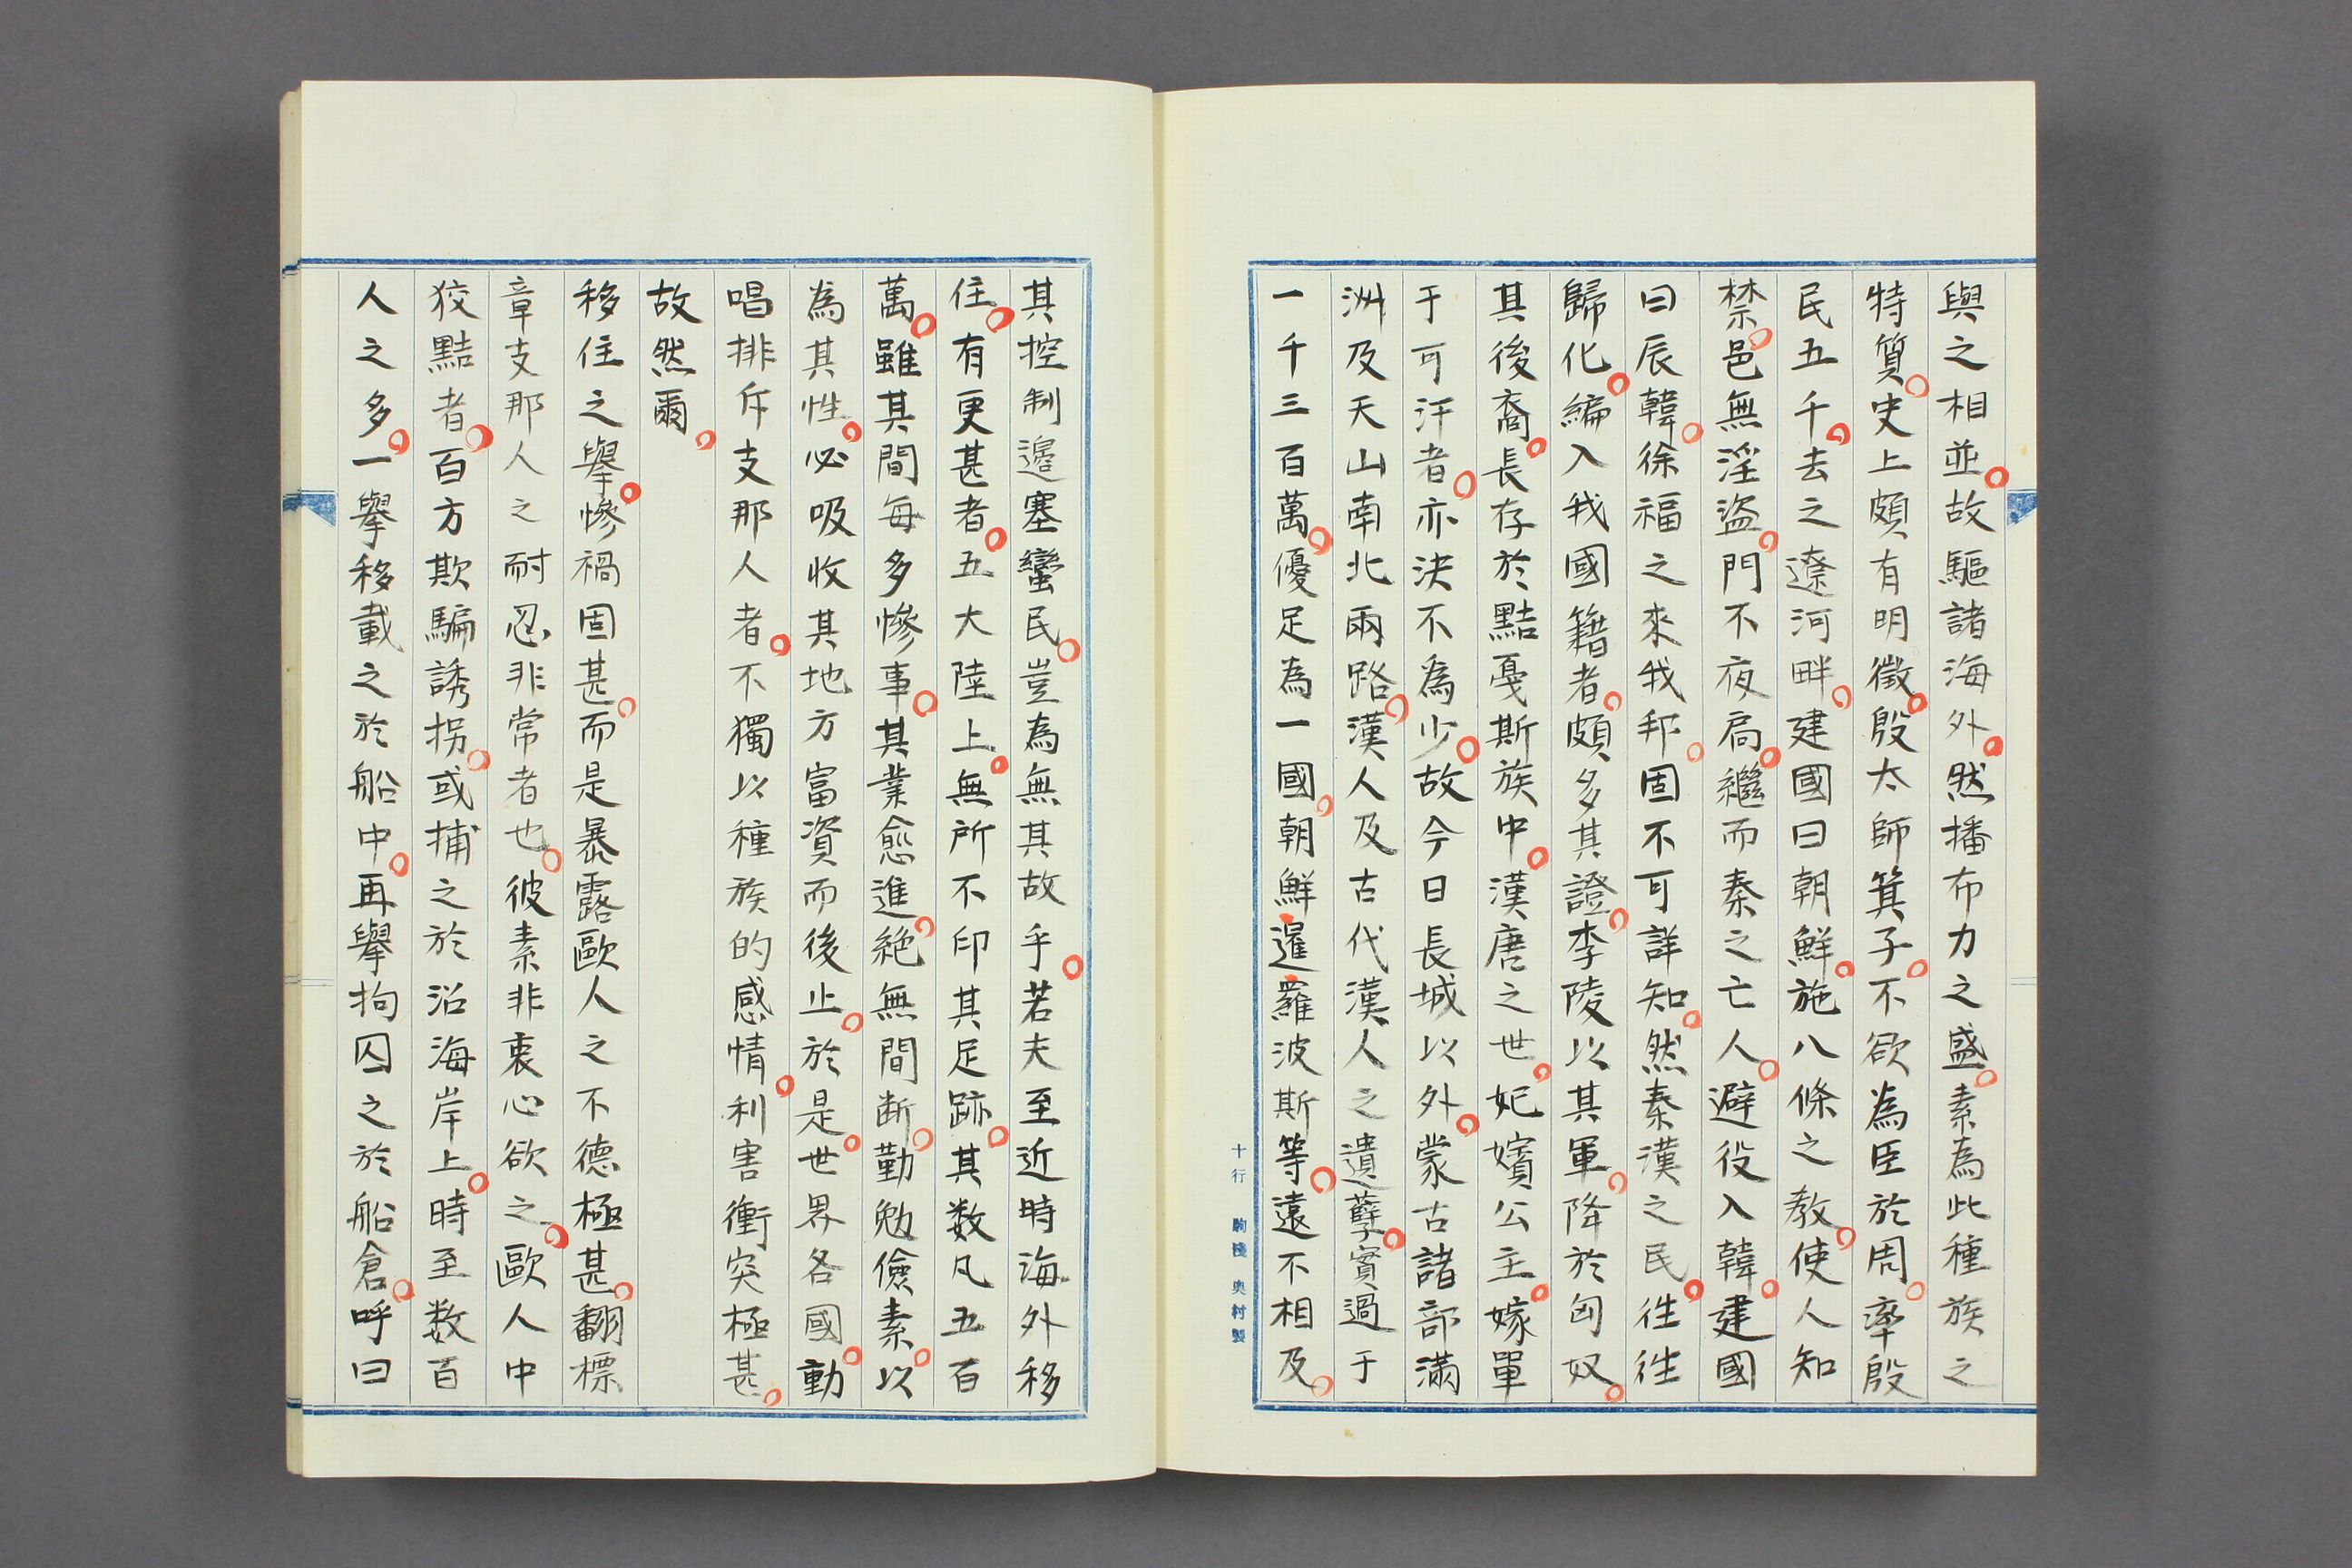 與之相並。故驅諸海外。然播布力之盛。素為此種族之
特質。史上頗有明徵。殷太師箕子。不欲為臣於周。率殷
民五千。去之遼河畔。建國曰朝鮮。施八條之教。使人知
禁。邑無淫盜。門不夜扃。繼而秦之亡人。避役入韓。建國
曰辰韓。徐福之來我邦。固不可詳知。然秦漢之民。往往
歸化。編入我國籍者。頗多其證。李陵以其軍。降於匈奴。
其後裔。長存於黠戞斯族中。漢唐之世。妃嬪公主。嫁單
于可汗者。亦決不為少。故今日長城以外。蒙古諸部滿
洲及天山南北兩路。漢人及古代漢人之遺孽。實過于
一千三百萬。優足為一國。朝鮮暹羅波斯等。遠不相及。
十行 奧村製
其控制邊塞蠻民。豈為無其故乎。若夫至近時海外移
住。有更甚者。五大陸上。無所不印其足跡。其数凡五百
萬。雖其間每多慘事。其業愈進。絕無間断。勤勉儉素。以
為其性。必吸收其地方富資而後止。於是。世界各國。動
唱排斥支那人者。不獨以種族的感情。利害衝突極甚。
故然爾。
移住之擧。慘禍固甚。而是暴露歐人之不德極甚。翻標
章支那人之耐忍非常者也。彼素非衷心欲之。歐人中
狡黠者。百方欺騙誘拐。或捕之於沿海岸上。時至数百
人之多。一擧移載之於船中。再擧拘囚之於船倉。呼曰